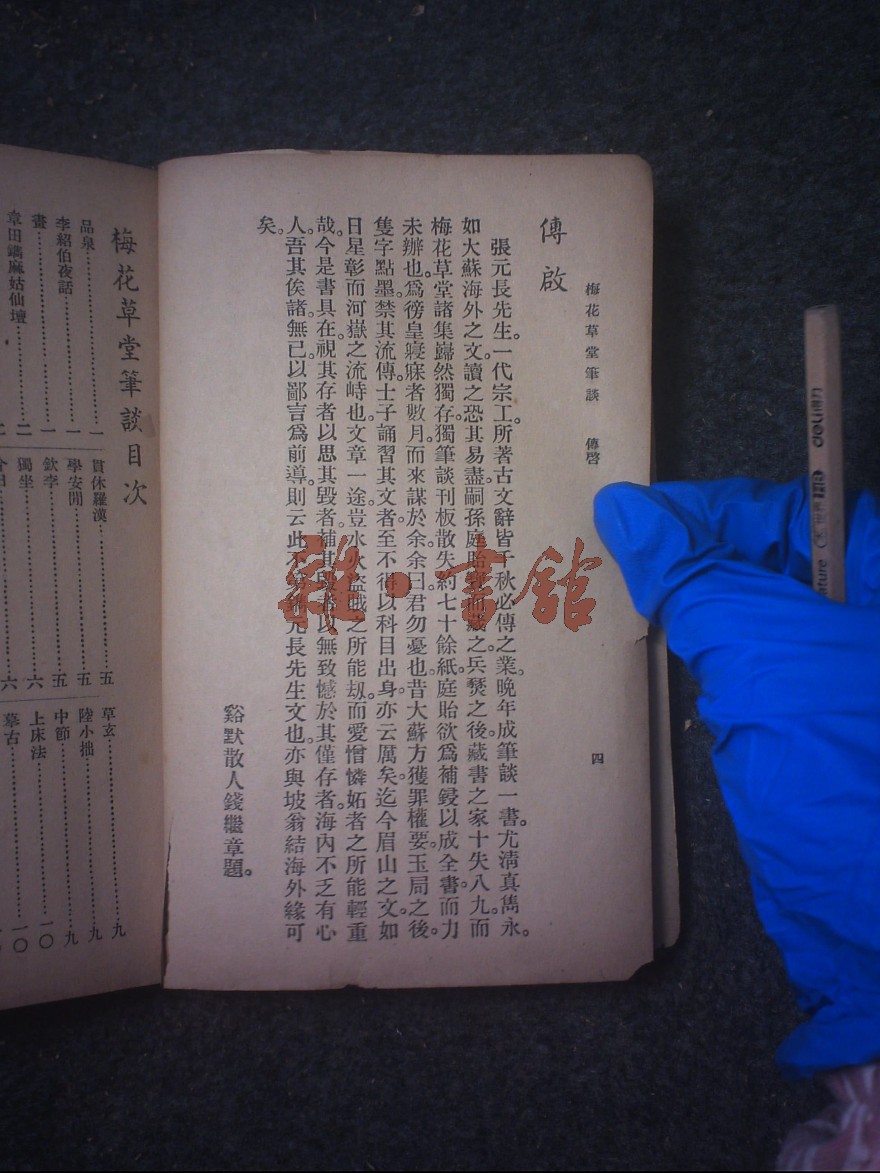 梅花草堂筆談　傳啓
四
傳啟
張元長先生。一代宗工。所著古文辭皆千秋必傳之業。晚年成筆談一書。尤清真雋永。
如大蘇海外之文。讀之恐其易盡。嗣孫庭貽而藏之。兵燹之後。藏書之家十失八九。而
梅花草堂諸集巋然獨存。獨筆談刊板散失約七十餘紙。庭貽欲爲補鋟以成全書。而力
未辦也。爲徬皇寢寐者數月。而來謀於余。余曰。君勿憂也。昔大蘇方獲罪權要。玉局之後。
隻字點墨。禁其流傳。士子誦習其文者。至不得以科目出身。亦云厲矣。迄今眉山之文。如
日星彰而河嶽之流峙也。文章一途。豈水火盜賊之所能劫。而愛憎憐妬者之所能輕重
哉。今是書具在。視其存者以思其毀者。補其毀者以無致憾於其僅存者。海內不乏有心
人。吾其俟諸。無已以鄙言爲前導。則云此不元長先生文也。亦與坡翁結海外緣可
矣。
谿默散人錢繼章題。
雜·書館
梅花草堂筆談目次
品泉……一
李紹伯夜話……一
畫……一
章田鐫麻姑仙壇……二
貫休羅漢……五
學安閒……五
欽李……五
獨坐……六
六
草玄……九
陸小拙……九
中節……九
上床法……一〇
摹古……一〇
deli得力